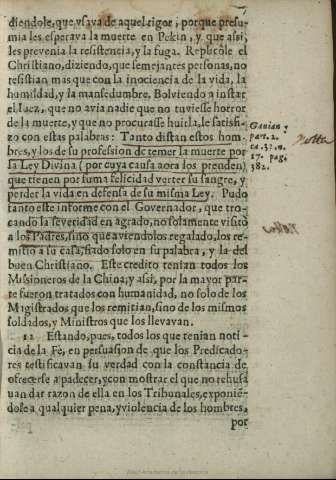 7
diendole, que vsava de aquel rigor, porque presu-
mia les esperava la muerte en Pekin, y que assi,
les prevenia la resistencia, y la fuga. Replicòle el
Christiano, diziendo, que semejantes personas, no
resistian mas que con la inociencia de la vida, la
humildad, y la mansedumbre. Bolviendo a instar
el Iuez, que no avia nadie que no tuviesse horror
de la muerte, y que no procurasse huirla, le satisfi-
zo con estas palabras: Tanto distan estos hom-
bres, y los de su profession de temer la muerte por
la Ley Divina (por cuya causa aora los prenden)
que tienen por suma felicidad verter su sangre, y
perder la vida en defensa de su misma Ley. Pudo
tanto este informe con el Governador, que tro-
cando la severidad en agrado, no solamente visitò
a los Padres, sino que aviendolos regalado, los re-
mitiò a su casa, fiado solo en su palabra, y la del
buen Christiano. Este credito tenian todos los
Missioneros de la China, y assi, por la mayor par-
te fueron tratados con humanidad, no solo de los
Magistrados que los remitian, sino de los mismos
soldados, y Ministros que los llevavan.
12 Estando, pues, todos los que tenian noti-
cia de la Fè, en persuasion de que los Predicado-
res testificavan su verdad con la constancia de
ofrecerse a padecer, y con mostrar el que no rehusa
uan dar razon de ella en los Tribunales, exponiē-
dole a qualquier pena, y violencia de los hombres,
por
Gauian,
par. 2.
ca. 3. n.
17. pag.
382.
Notta